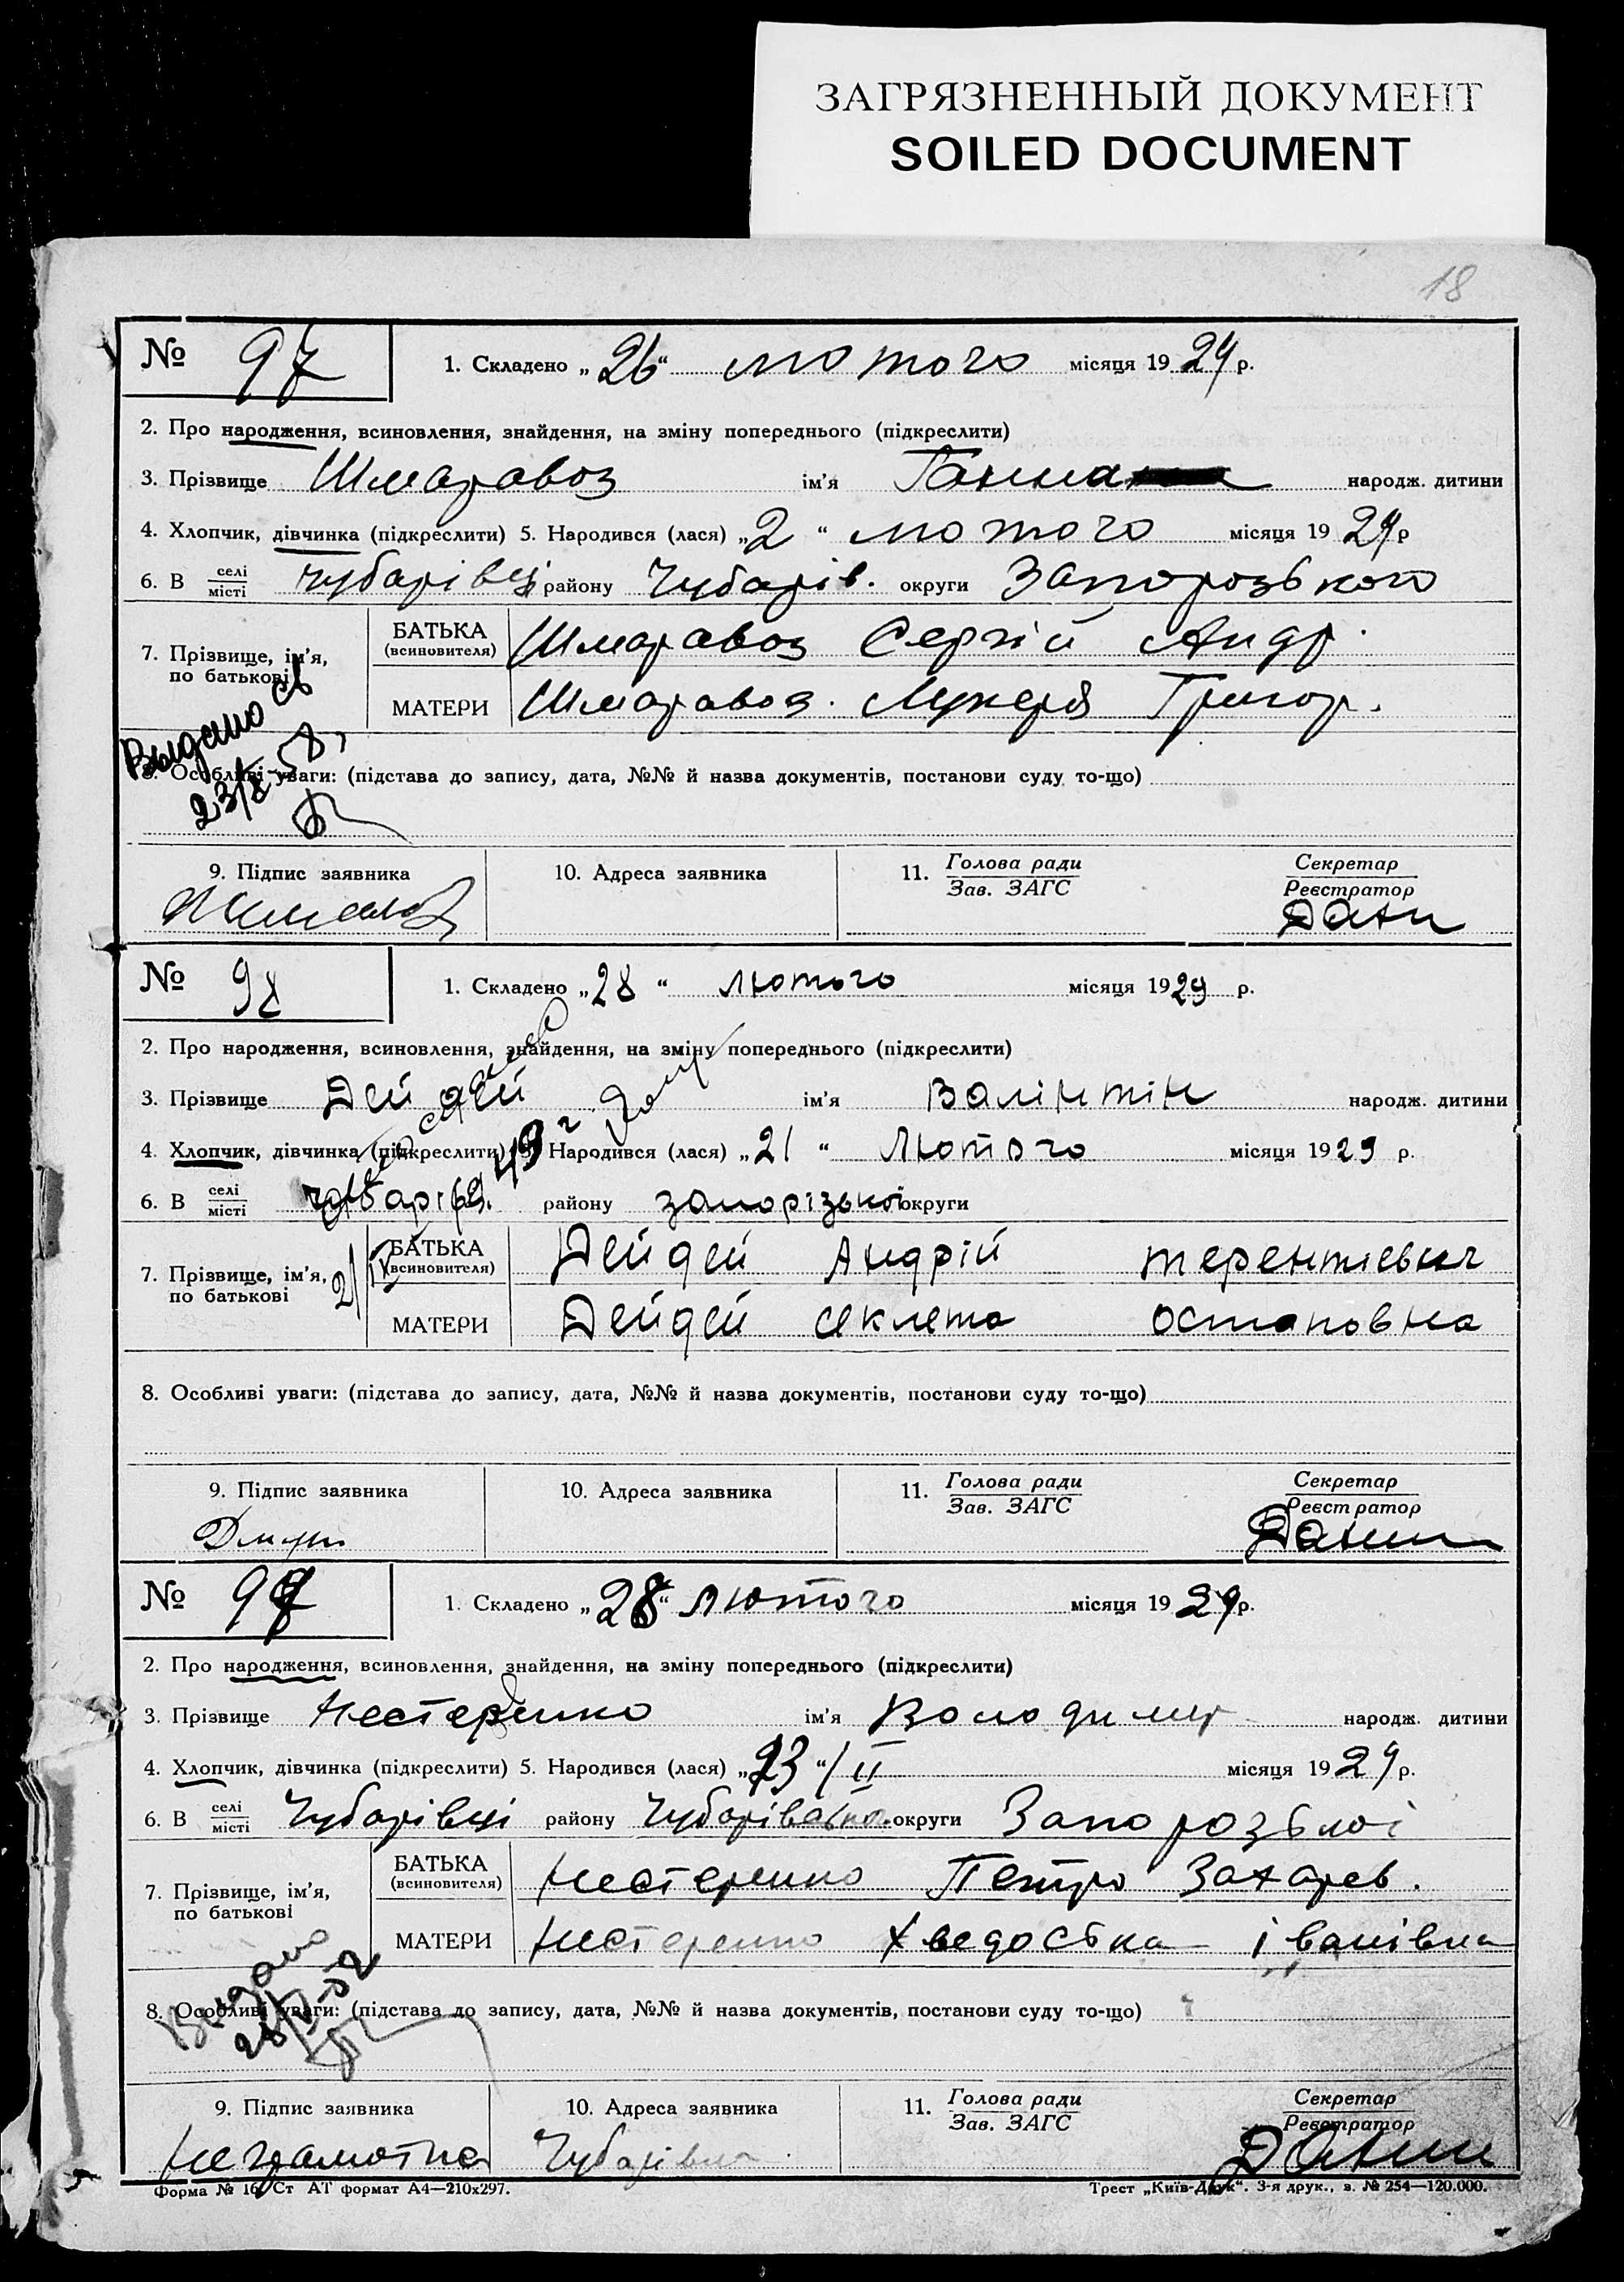 ЗАГРЯЗНЕННЫЙ ДОКУМЕНТ
SOILED DOCUMENT
18
№ 97 1. Складено „26“ лютого місяця 1929 р.
2. Про народження, всиновлення, знайдення, на зміну попереднього (підкреслити)
3. Прізвище Шмаравоз ім'я Ганна народж. дитини
4. Хлопчик, дівчинка (підкреслити) 5. Народився (лася) „2“ лютого місяця 1929 р
6. В селі місті Чубарівці району Чубарів. округи Запорозького
7. Прізвище, ім'я, по батькові БАТЬКА (всиновителя) Шмаравоз Сергій Андр.
МАТЕРИ Шмаравоз. Лукерія Григор.
Выдано св
23/X-58
8. Особливі уваги: (підстава до запису, дата, №№ й назва документів, постанови суду то-що)
9. Підпис заявника 10. Адреса заявника 11. Голова ради Зав. ЗАГС Секретар Реєстратор
№ 98 1. Складено „28“ лютого місяця 1929 р.
2. Про народження, всиновлення, знайдення, на зміну попереднього (підкреслити)
3. Прізвище Дейдей ім'я Валінтін народж. дитини
4. Хлопчик, дівчинка (підкреслити) 5. Народився (лася) „21“ Лютого місяця 1929 р.
6. В селі місті чубарівц. району запорізької округи
7. Прізвище, ім'я, по батькові БАТЬКА (всиновителя) Дейдей Андрій терентієвич
МАТЕРИ Дейдей секлета остаповна
49 г
8. Особливі уваги: (підстава до запису, дата, №№ й назва документів, постанови суду то-що)
9. Підпис заявника 10. Адреса заявника 11. Голова ради Зав. ЗАГС Секретар Реєстратор
№ 99 1. Складено „28“ лютого місяця 1929 р.
2. Про народження, всиновлення, знайдення, на зміну попереднього (підкреслити)
3. Прізвище Нестеренко ім'я Володимир народж. дитини
4. Хлопчик, дівчинка (підкреслити) 5. Народився (лася) „23“/II місяця 1929 р.
6. В селі місті Чубарівці району Чубарівсько округи Запорозької
7. Прізвище, ім'я, по батькові БАТЬКА (всиновителя) Нестеренко Петро Захарев.
МАТЕРИ Нестеренко Хведоська іванівна
Видано
8. Особливі уваги: (підстава до запису, дата, №№ й назва документів, постанови суду то-що)
9. Підпис заявника 10. Адреса заявника 11. Голова ради Зав. ЗАГС Секретар Реєстратор
неграмотна Чубарівка
Форма № 16, Ст АТ формат А4—210х297. Трест „Київ-Друк“. 3-я друк., з. № 254—120.000.